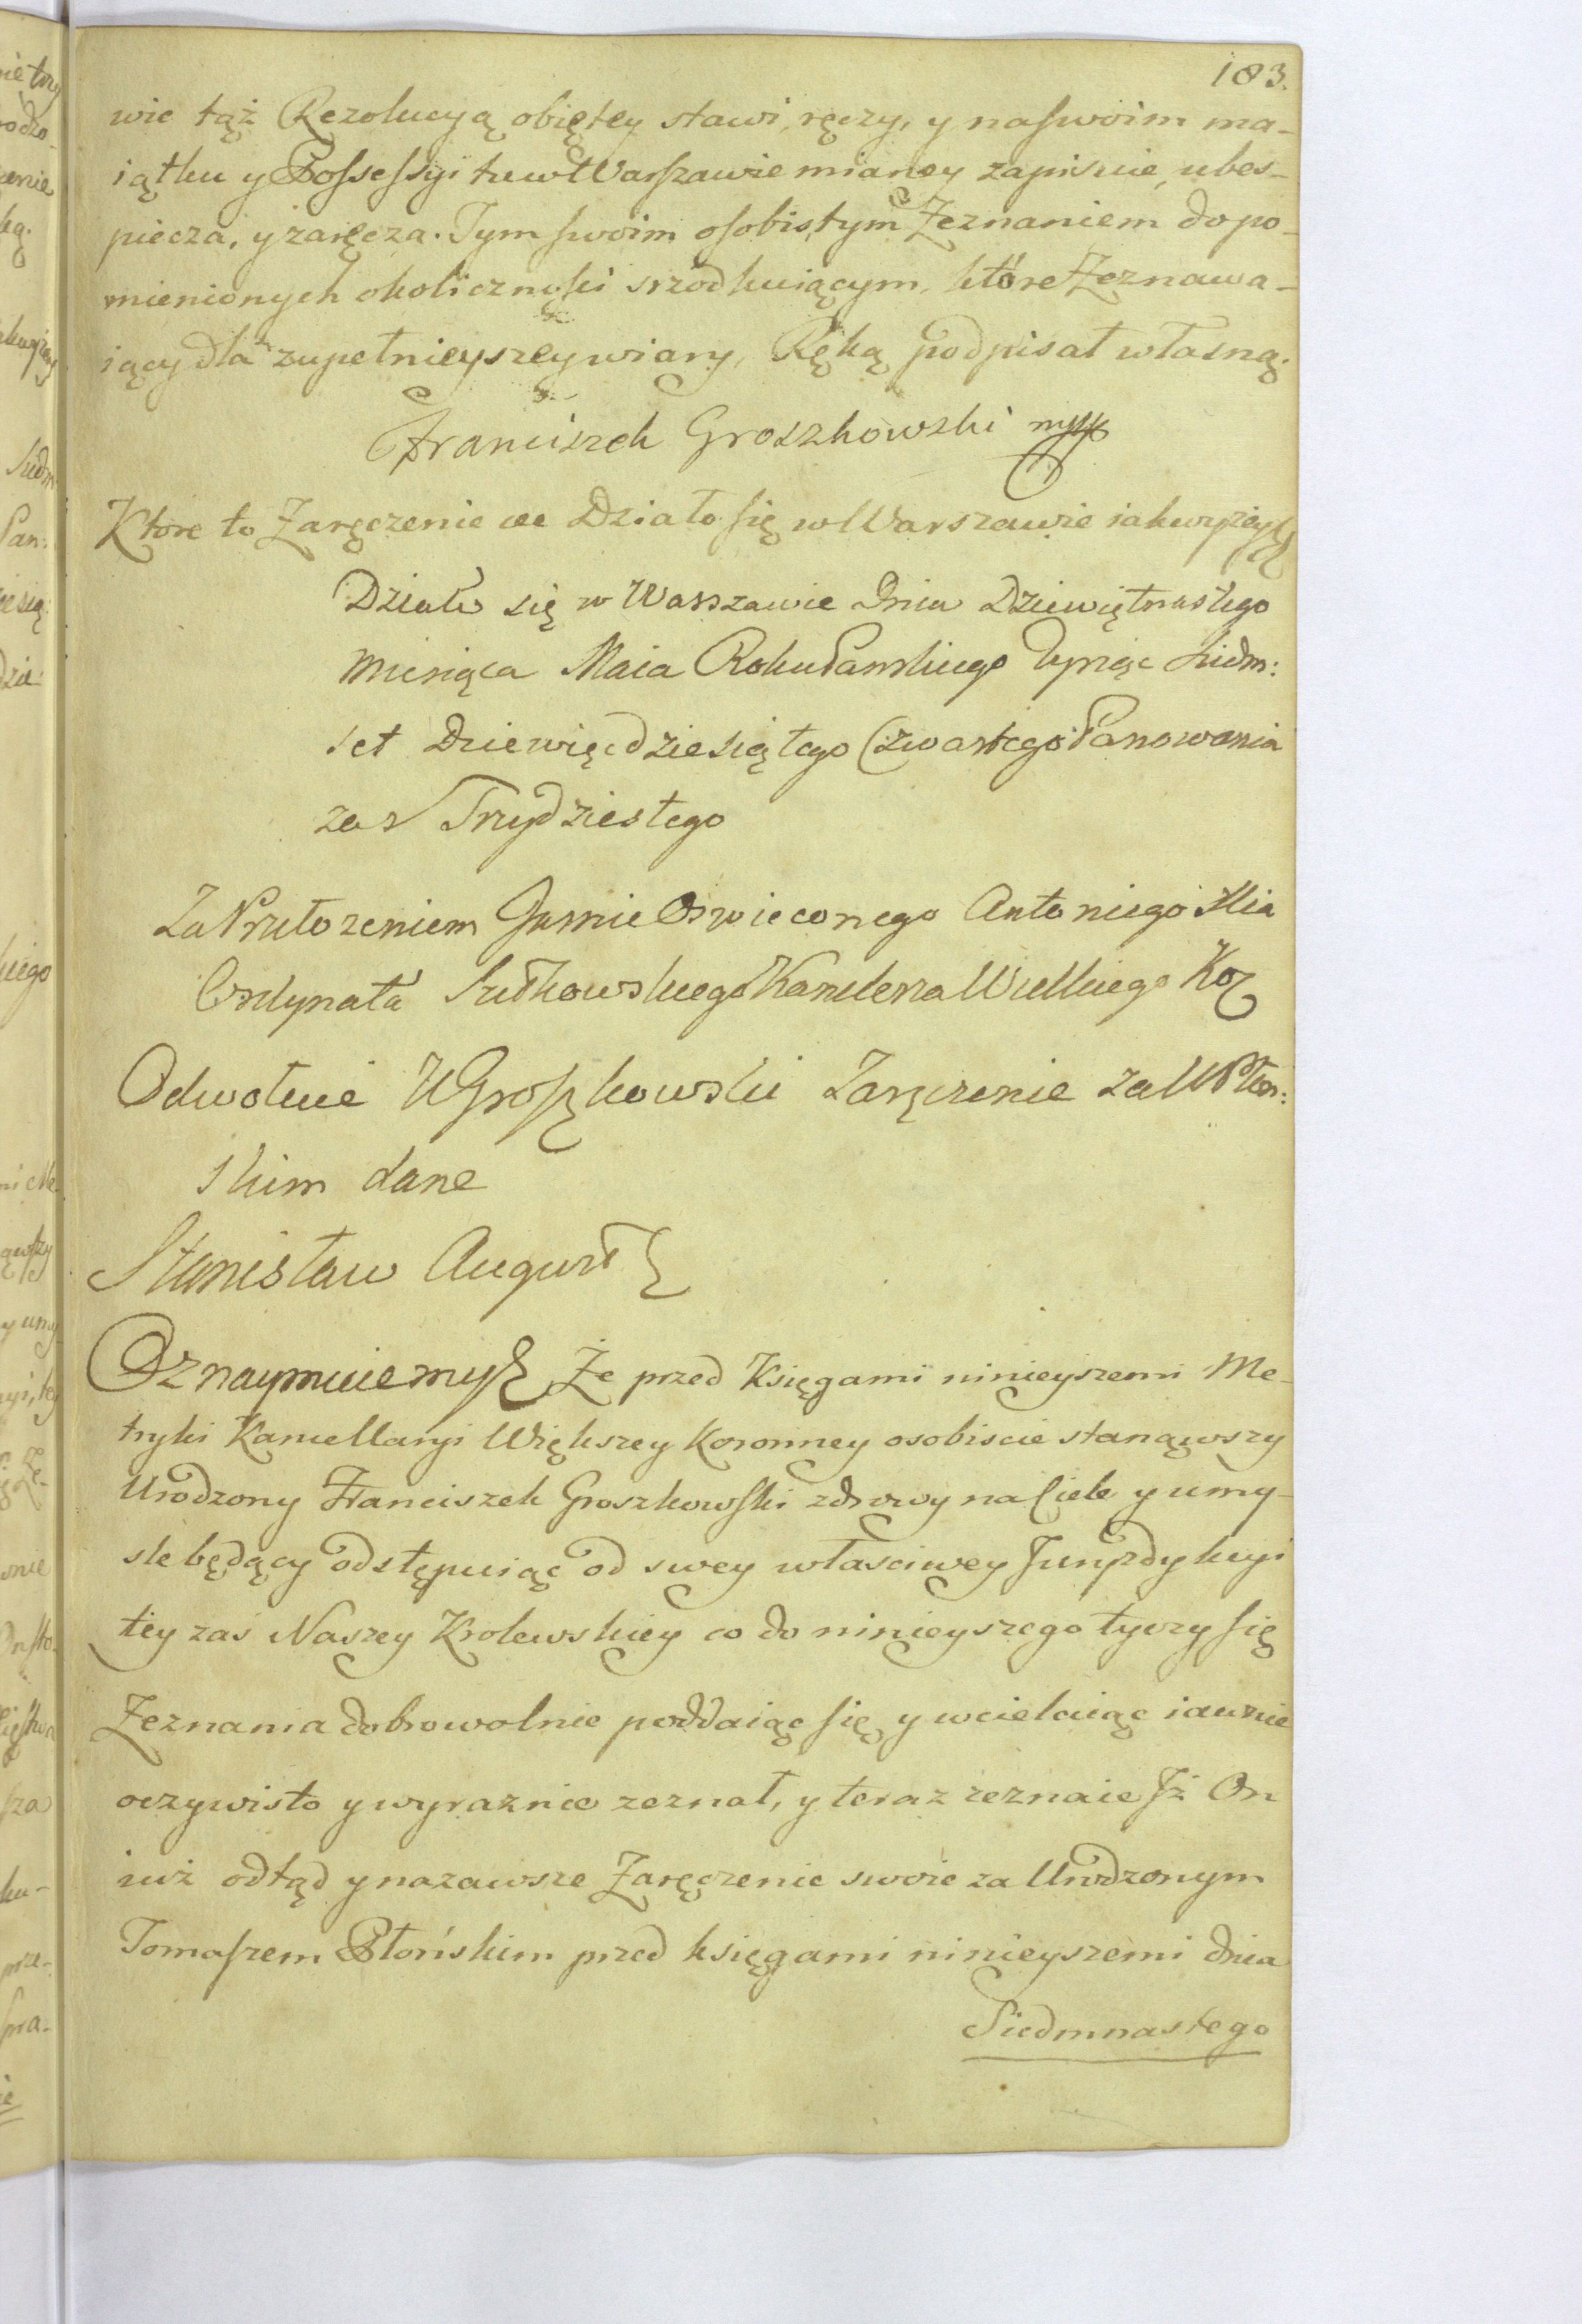 183.
wie tąż Rezolucyą obiętey stawi, ręczy, y na swoim ma-
iątku y Possessyi tu w Warszawie mianey zapisuie, ubes-
piecza, y zaręcza. Tym swoim osobistym Zeznaniem do po-
mienionych okoliczności srzodkuiącym, które Zeznawa-
iący dla zupełnieyszey wiary, Ręką podpisał własną.
Franciszek Groszkowski mpp
Ktore to Zaręczenie etc Działo się w Warszawie iak wyżey
Działo się w Warszawie Dnia Dziewiętnastego
Miesiąca Maia Roku Pańskiego Tysiąc Siedm:
set Dziewięcdziesiątego Czwartego Panowania
zas Trzydziestego
Za Przełozeniem Jasnie Oswieconego Antoniego Xcia
Ordynata Sułkowskiego Kanclerza Wielkiego Kor
Odwołuie U Groszkowski Zaręczenie za U Płon:
skim dane
Stanisław August
Oznaymuiemy Że przed Księgami ninieyszemi Me-
tryki Kancellaryi Większey Koronney osobiscie stanąwszy
Urodzony Franciszek Groszkowski zdrowy na Ciele y umy-
sle będący odstępuiąc od swey własciwey Juryzdykcyi
tey zas Naszey Krolewskiey co do ninieyszego tyczy się
Zeznania dobrowolnie poddaiąc się, y wcielaiąc iawnie
oczywisto y wyraznie zeznał, y teraz zeznaie Jż On
iuż odtąd y nazawsze Zaręczenie swoie za Urodzonym
Tomaszem Płońskim przed księgami ninieyszemi dnia
Siedmnastego